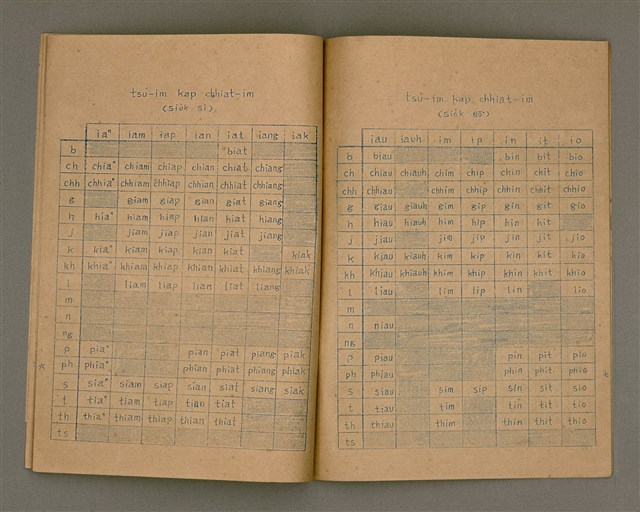 tsú-im kap chhiat-im
(siók sì)
iaⁿ iam iap ian iat iang iak
b biat
ch chiaⁿ chiam chiap chian chiat chiang
chh chhiaⁿ chhiam chhiap chhian chhiat chhiang
g giam giap gian giat giang
h hiaⁿ hiam hiap hian hiat hiang
j jiam jiap jian jiat jiang
k kiaⁿ kiam kiap kian kiat kiak
kh khiaⁿ khiam khiap khian khiat khiang khiak
l liam liap lian liat liang
m
n
ng
p piaⁿ pian piat piang piak
ph phiaⁿ phian phiat phiang phiak
s siaⁿ siam siap sian siat siang siak
t tiaⁿ tiam tiap tian tiat
th thiaⁿ thiam thiap thian thiat
ts
tsú-im kap chhiat-im
(siók gō͘)
iau iauh im ip in it io
b biau bin bit bio
ch chiau chiauh chim chip chin chit chio
chh chhiau chhim chhip chhin chhit chhio
g giau giauh gim gip gin git gio
h hiau hiauh him hip hin hit
j jiau jim jip jin jit jio
k kiau kiauh kim kip kin kit kio
kh khiau khiauh khim khip khin khit khio
l liau lim lip lin lio
m
n niau
ng
p piau pin pit pio
ph phiau phin phit phio
s siau sim sip sin sit sio
t tiau tim tin tit tio
th thiau thim thin thit thio
ts